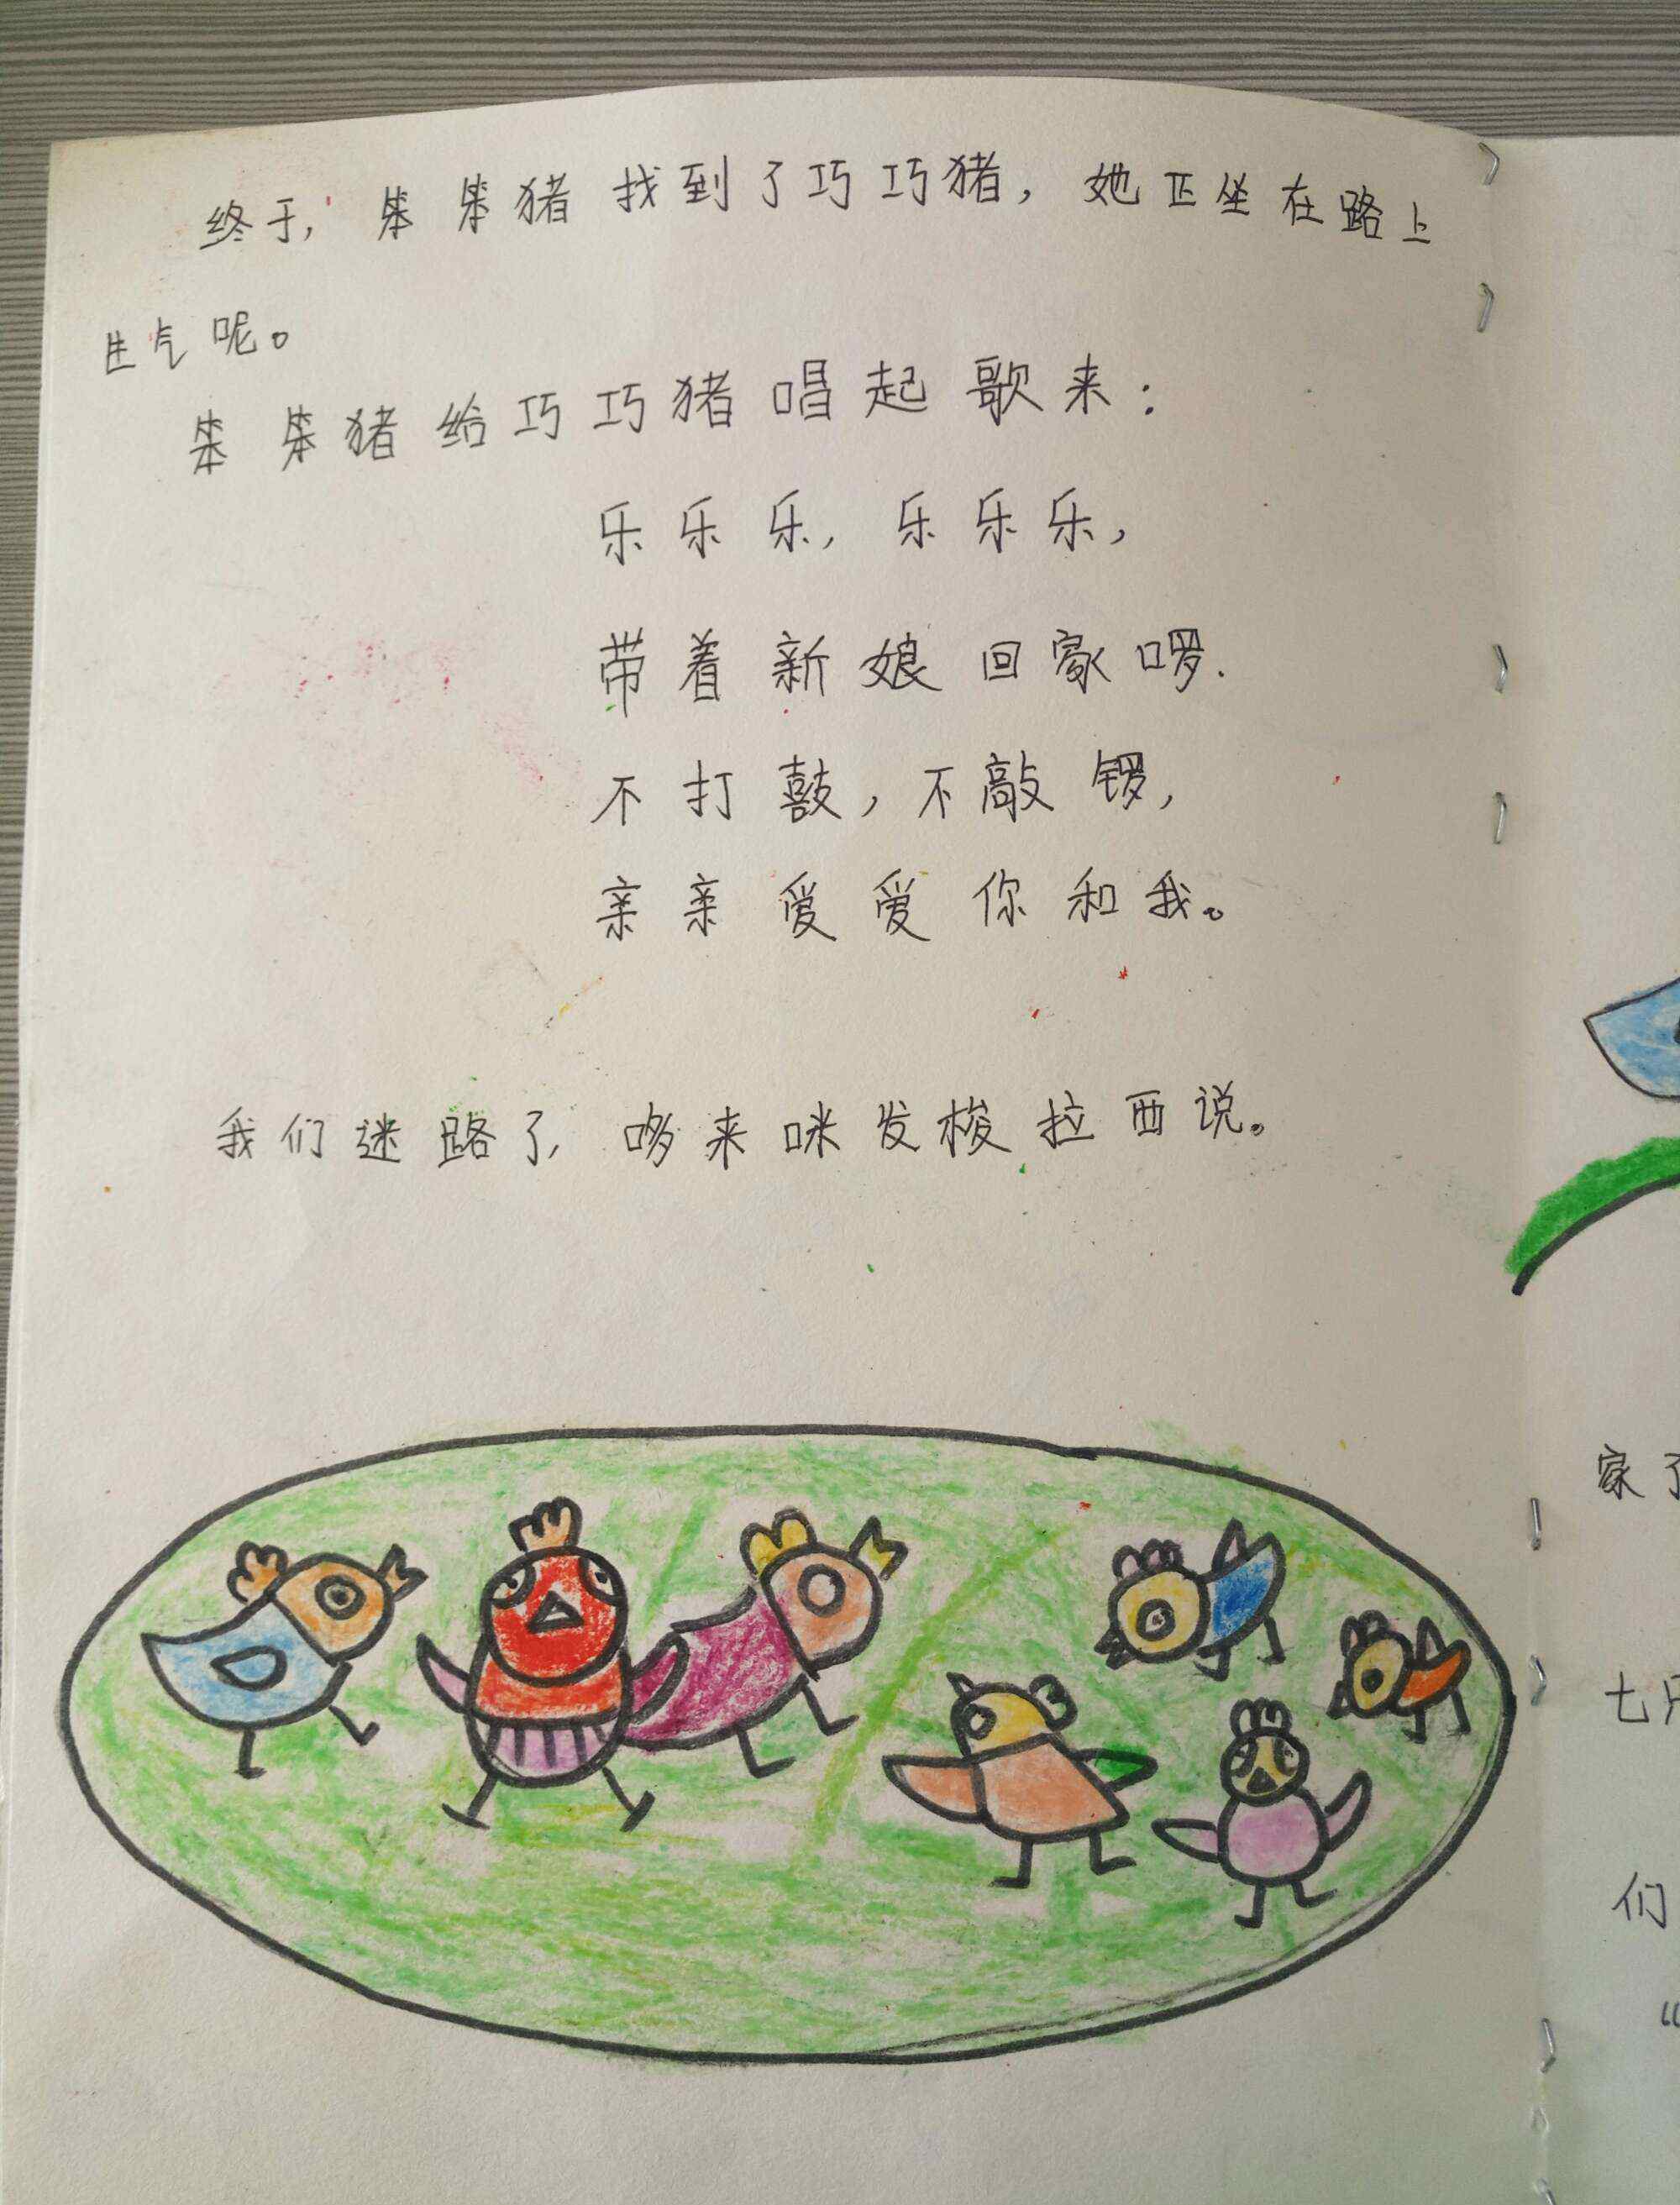 终于，笨笨猪找到了巧巧猪，她正坐在路上
生气呢。
笨笨猪给巧巧猪唱起歌来：
乐乐乐，乐乐乐，
带着新娘回家啰.
不打鼓，不敲锣，
亲亲爱爱你和我。
我们迷路了，哆来咪发梭拉西说。
家了
七只
们
“